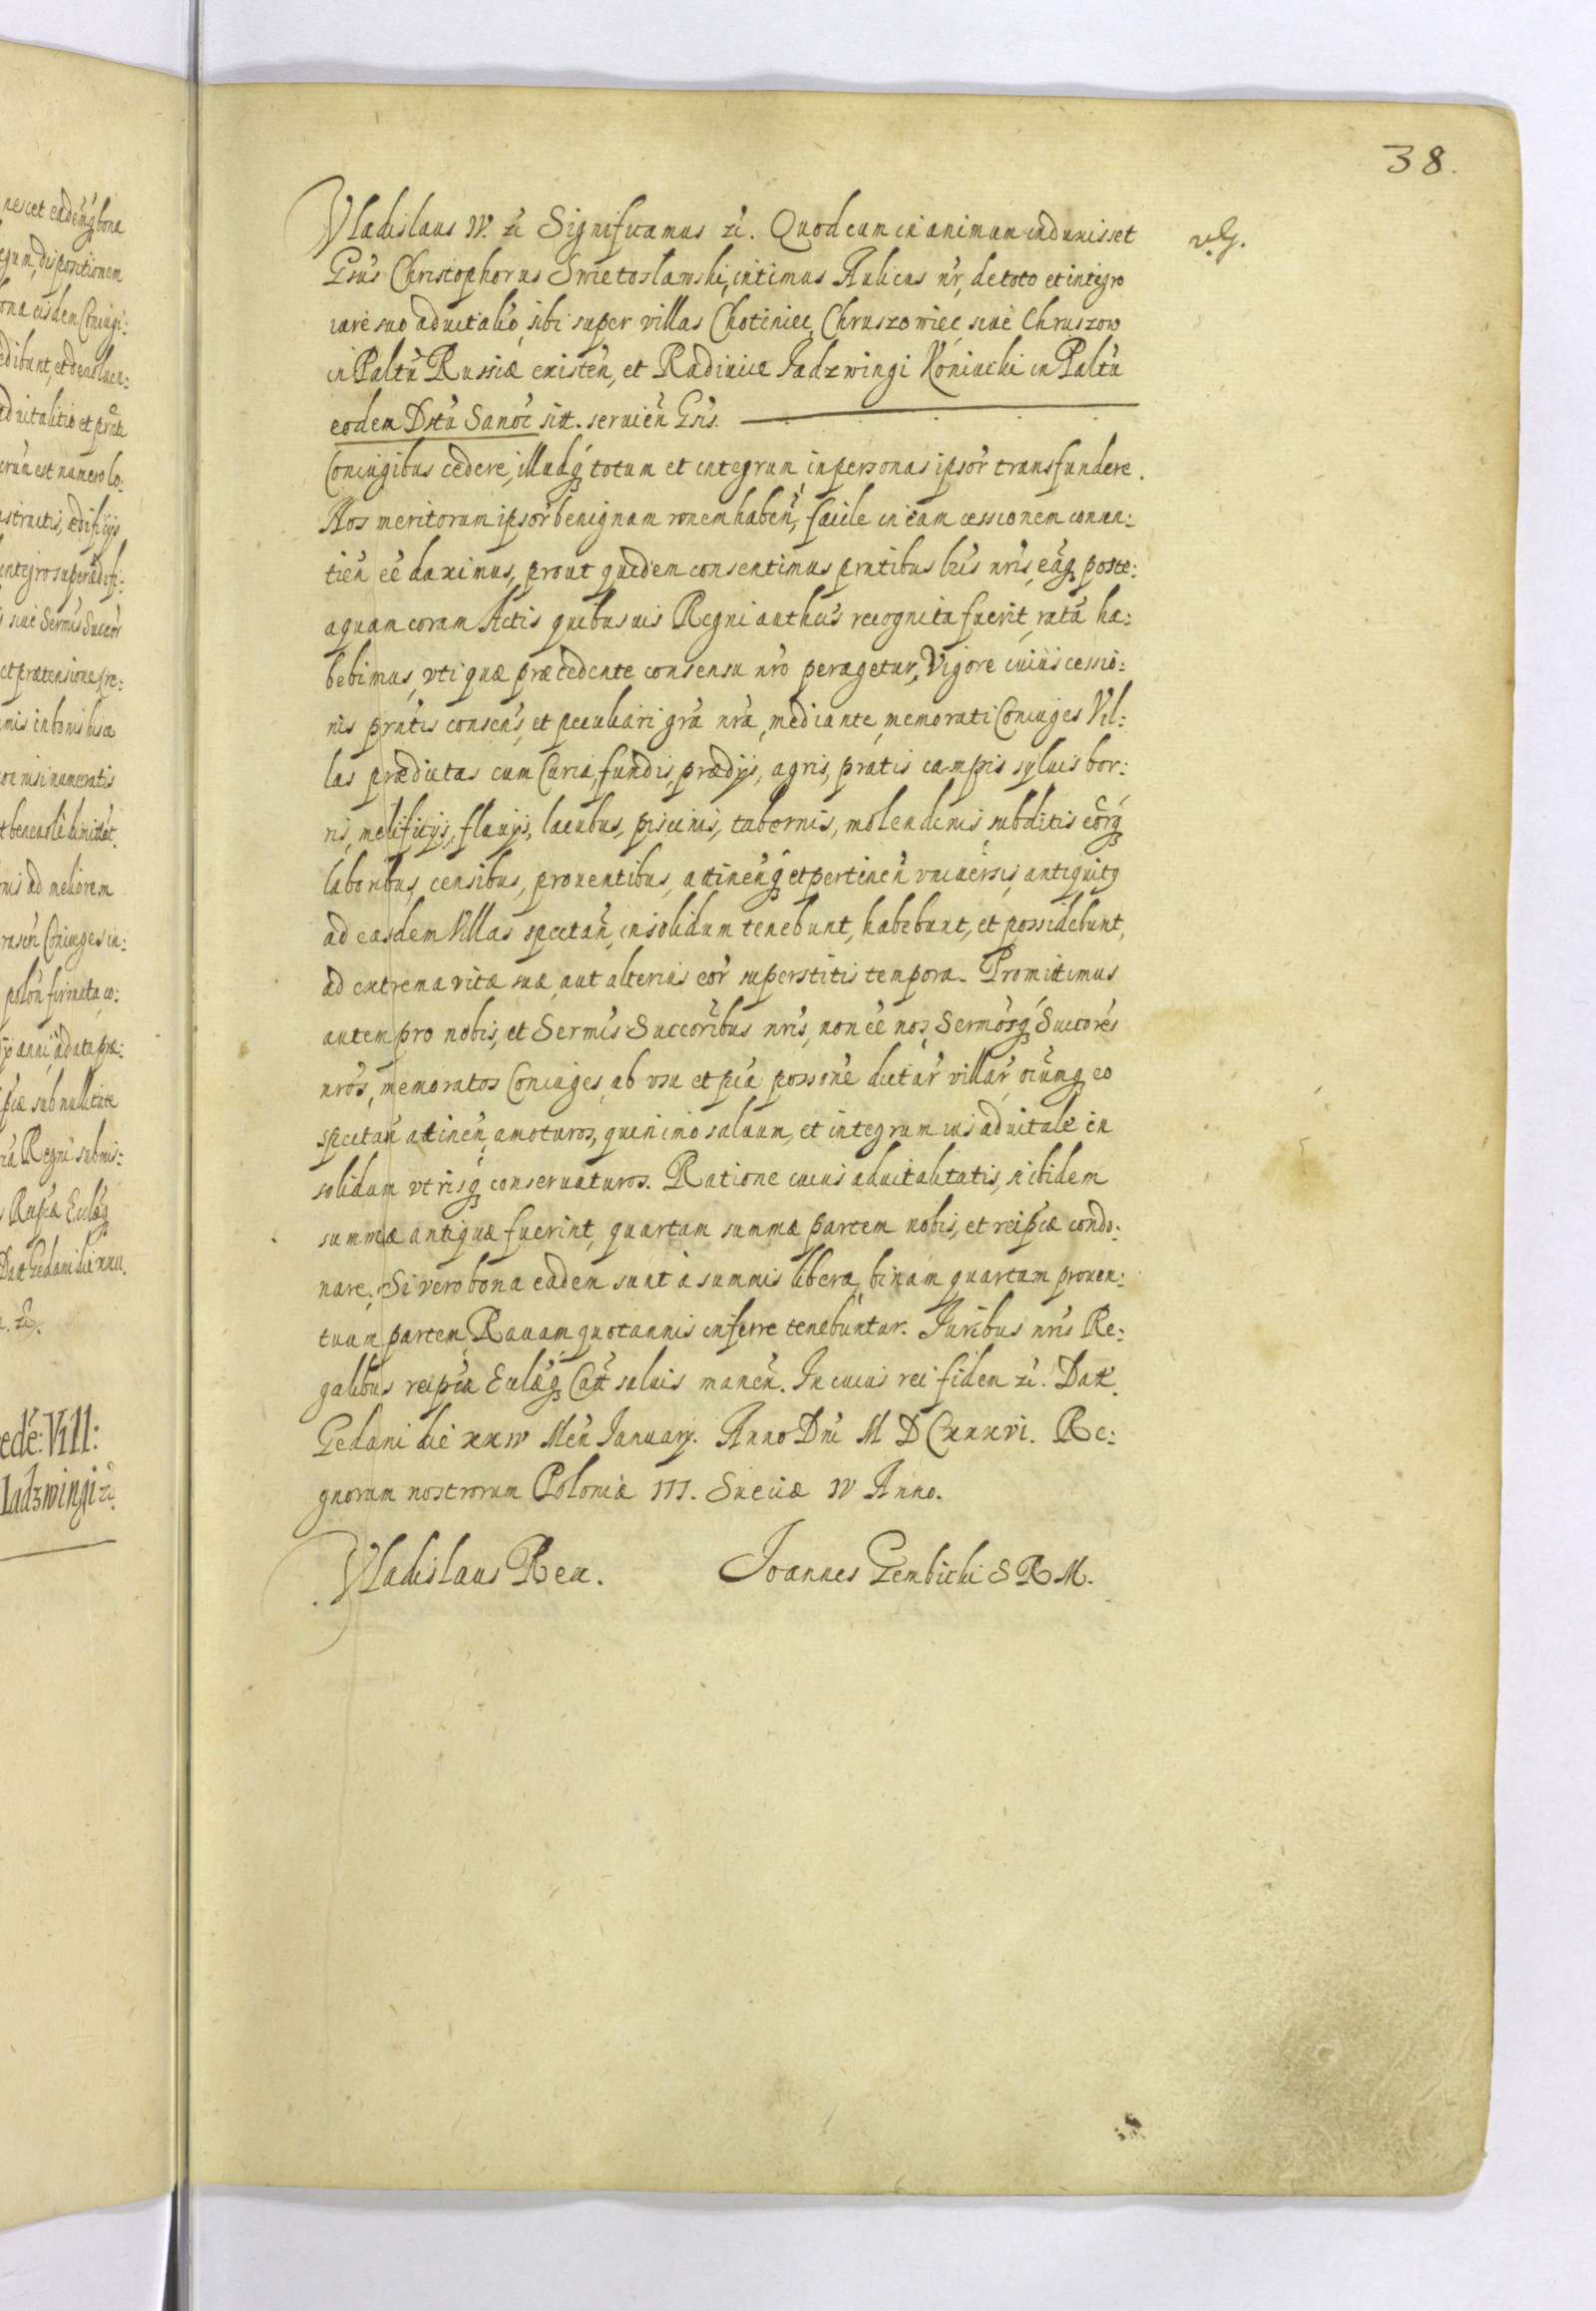 38.
Vladislaus IV. zc Significamus zc. Quod cum in animum induxisset
Gsus Christophorus Swietoslawski, intimus Aulicus nr, de toto et integro
iure suo aduitalio, sibi super villas Chotiniec, Chruszowiec siue Chruszow
in Paltu Russiæ existen, et Radiuice Jadzwingi Koniuchi in Paltu
eodem Dstu Sanoc sitt. seruien Gsis.
Coniugibus cedere, illudq totum et integrum in personas ipsor transfundere.
Nos meritorum ipsor benignam ronem haben, facile in eam cessionem consen:
tien ee duximus, prout quidem consentimus pntibus lris nris, eaq poste:
aquam coram Actis quibusuis Regni authcis recognita fuerit, rata ha:
bebimus, vti quæ præcedente consensu nro peragetur, Vigore cuius cessio:
nis pntis consens, et peculiari gra nra, mediante, memorati Coniuges Vil:
las prædictas cum Curia, fundis, prædijs, agris, pratis campis syluis bor:
ris, melificijs, fluuijs, lacubus, piscinis, tabernis, molendinis, subditis eorq
laboribus, censibus, prouentibus, attinenq et pertinen vniuersis, antiquitq
ad easdem Villas spectan, in solidum tenebunt, habebunt, et possidebunt,
ad extrema vitæ suæ, aut alterius eor superstitis tempora. Promittimus
autem pro nobis, et Sermis Succoribus nris, non ee nos, Sermosq Succores
nros, memoratos Coniuges, ab vsu et pca possone dictar villar, oiumq eo
spectan attinen, amoturos, quinimo saluum, et integrum ius aduitale in
solidum vtrisq conseruaturos. Ratione cuius aduitalitatis, si ibidem
summæ antiquæ fuerint, quartam summæ partem nobis, et reipcæ condo:
nare, Si vero bona eadem sunt à summis libera, binam quartam prouen:
tuum partem, Rauam quotannis inferre tenebuntur. Iuribus nris Re:
galibus reipcæ Ecclæq Catt saluis manen. In cuius rei fidem zc. Datt.
Gedani die xxiv Men Ianuarij. Anno Dni M D Cxxxvi. Re:
gnorum nostrorum Poloniæ III. Sueciæ IV Anno.
Vladislaus Rex. Joannes Gembicki S R M.